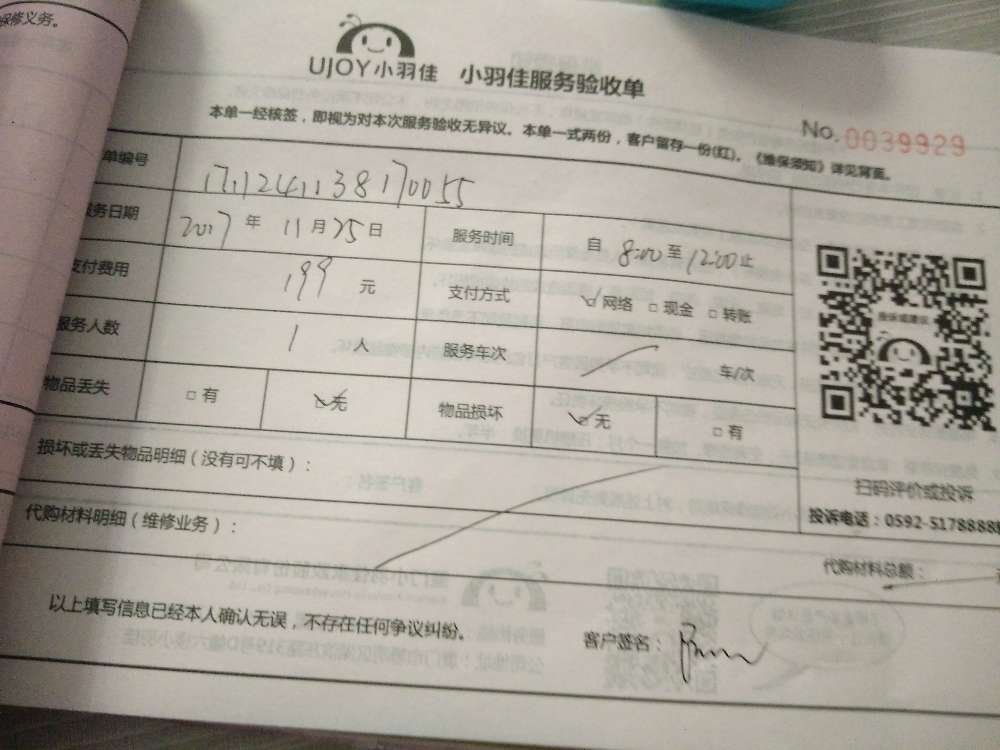 保修义务。
UJOY小羽佳 小羽佳服务验收单
本单一经核签，即视为对本次服务验收无异议。本单一式两份，客户留存一份(红)。《维保须知》详见背面。
No. 0039929
单编号 1711241138170055
服务日期 2017年 11月25日 服务时间 自 8:00至12:00止
支付费用 199 元 支付方式 ☑网络 □现金 □转账
服务人数 1 人 服务车次 车/次
物品丢失 □有 ☑无 物品损坏 ☑无 □有
投诉或建议
扫码评价或投诉
投诉电话：0592-5178888
损坏或丢失物品明细（没有可不填）：
代购材料明细（维修业务）：
代购材料总额：
以上填写信息已经本人确认无误，不存在任何争议纠纷。
客户签名：